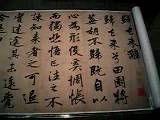 歸去來辭
歸去來兮田園將
蕪胡不歸既自以
心為形役奚惆悵
而獨悲悟已往之不
諫知來者之可追
實迷途其未遠覺